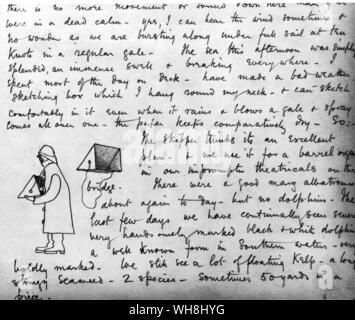 there is no more movement or sound down here than if
were in a dead calm - yes, I can hear the wind sometimes &
no wonder as we are bursting along under full sail at ten
knots in a regular gale - The sea this afternoon was simply
splendid, an immense swell & breaking everywhere - I
spent most of the day on deck - have made a bad weather
sketching box which I hang round my neck - & can sketch
comfortably in it even when it rains & blows a gale & spray
comes all over one - the paper keeps comparatively dry - So:-
The skipper thinks it's an excellent
plan - & we use it for a barrel organ
in our impromptu theatricals on the
bridge.
There were a good many albatross
about again to day - but no dolphin - The
last few days we have continually seen several
very handsomely marked black & white dolphin
a well known form in Southern waters - very
boldly marked - We still see a lot of floating Kelp - a long
stringy seaweed - 2 species - Sometimes 50 yards in a
piece -
alamy
Image ID: WH8HYG
www.alamy.com